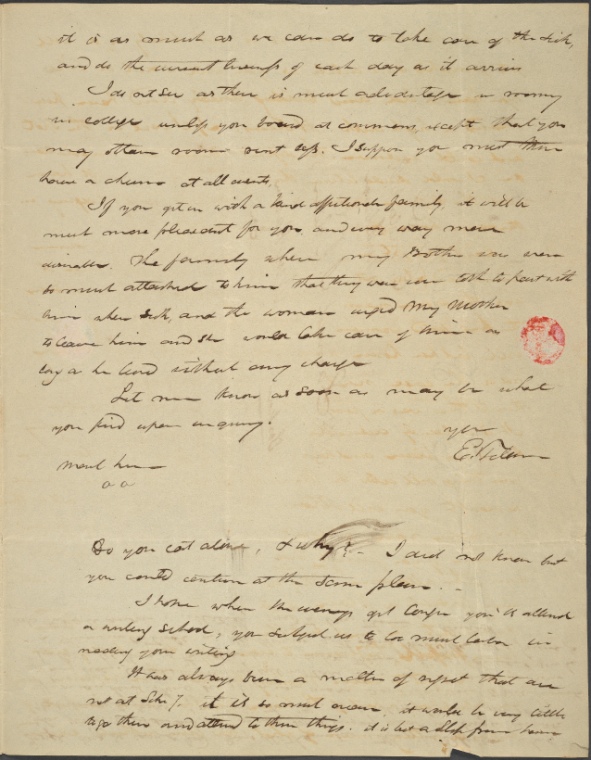 it is as much as we can do to take care of the sick,
and do the current business of each day as it arrives
I do not see as there is much advantage in rooming
in college unless you board at commons, except that you
may obtain room rent less. I suppose you must then
have a chum at all events.
If you get in with a kind affectionate family, it will be
much more pleasant for you, and every way more
desirable. The family where my Brother was were
so much attached to him that they were loth to part with
him when sick, and the woman urged my Mother
to leave him and she would take care of him as
long as he lived without any charge
Let me know as soon as may be what
you find upon inquiry.
yrs
mark here
Do you eat alone, & why? - I did not know but
you could continue at the same place. -
I hope when the evenings get longer you'll attend
a writing school, you subject us to too much labor in
reading your writing
It has always been a matter of regret that are
not at it is so much it would be very little
to go there and attend to these things. it is but a step from